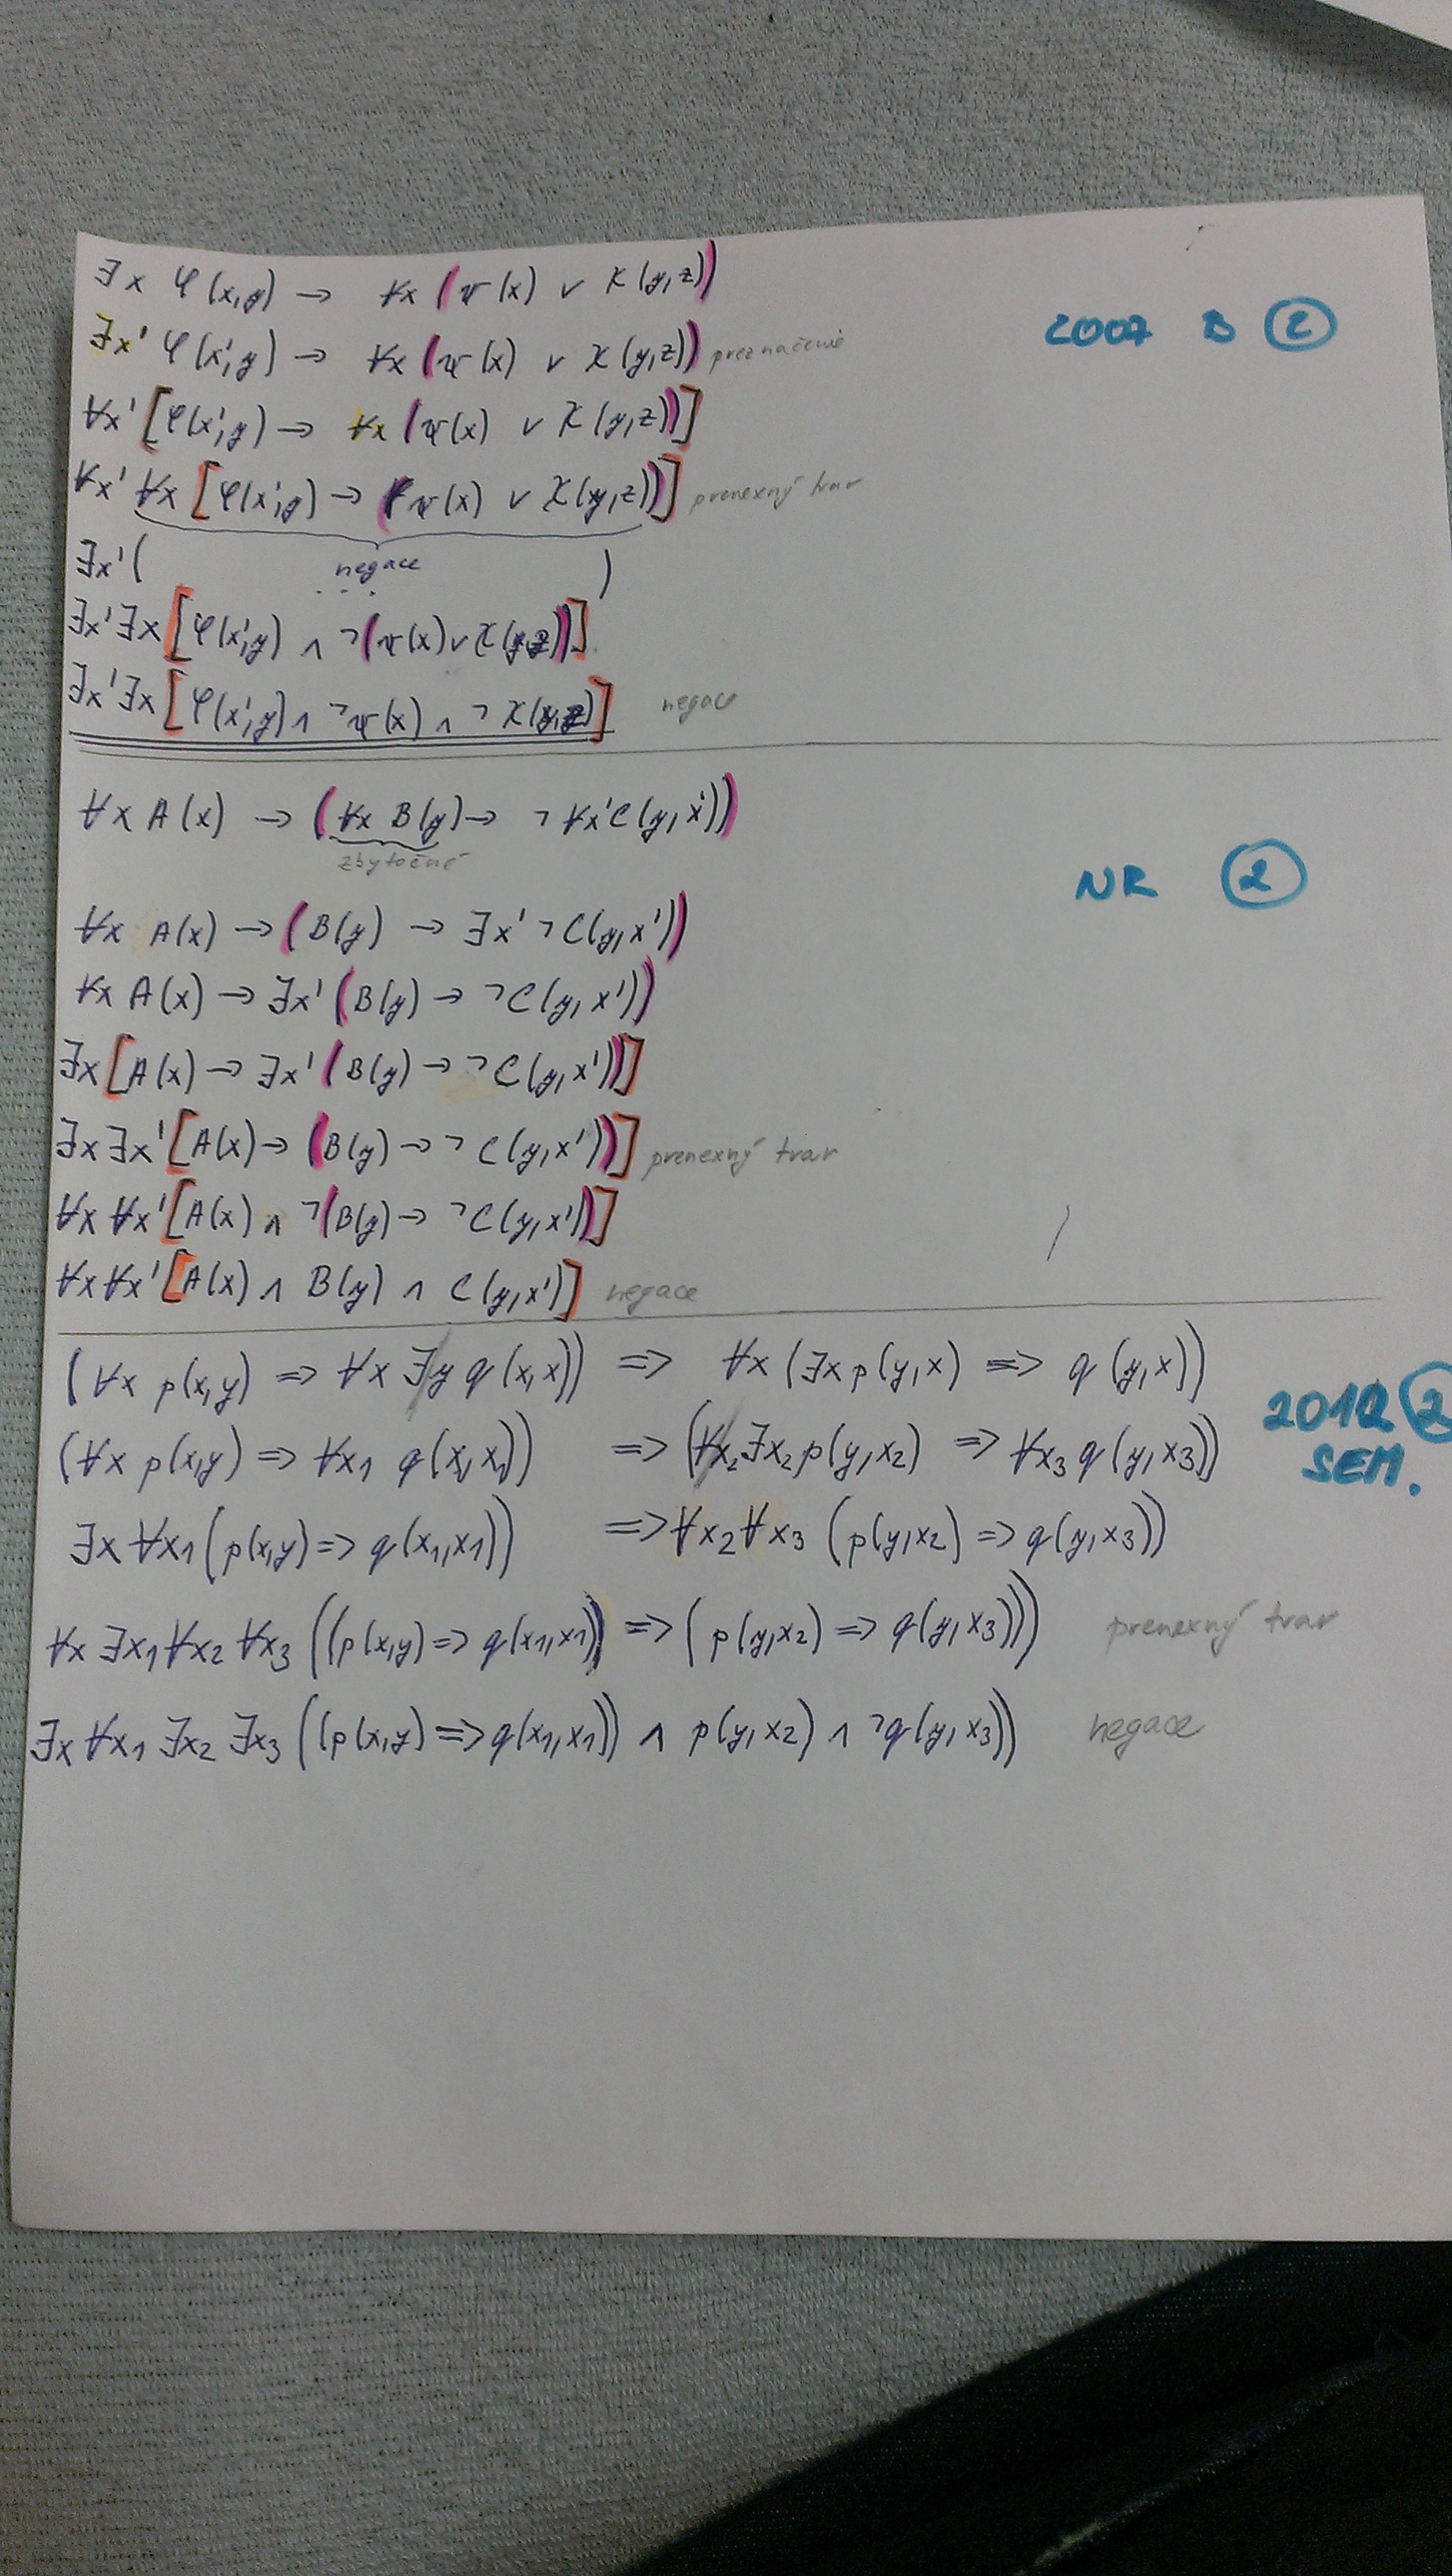 ∃x φ(x,y) → ∀x (ψ(x) ∨ χ(y,z))
2007 B ②
∃x' φ(x',y) → ∀x (ψ(x) ∨ χ(y,z)) preznačenie
∀x' [φ(x',y) → ∀x (ψ(x) ∨ χ(y,z))]
∀x' ∀x [φ(x',y) → (ψ(x) ∨ χ(y,z))] prenexný tvar
∃x' ( negace )
...
∃x' ∃x [φ(x',y) ∧ ¬(ψ(x) ∨ χ(y,z))]
∃x' ∃x [φ(x',y) ∧ ¬ψ(x) ∧ ¬χ(y,z)] negace
∀x A(x) → (∀x B(y) → ¬∀x' C(y,x'))
zbytočné
NR ②
∀x A(x) → (B(y) → ∃x' ¬C(y,x'))
∀x A(x) → ∃x' (B(y) → ¬C(y,x'))
∃x [A(x) → ∃x' (B(y) → ¬C(y,x'))]
∃x ∃x' [A(x) → (B(y) → ¬C(y,x'))] prenexný tvar
∀x ∀x' [A(x) ∧ ¬(B(y) → ¬C(y,x'))]
∀x ∀x' [A(x) ∧ B(y) ∧ C(y,x')] negace
(∀x p(x,y) => ∀x ∃y q(x,x)) => ∀x (∃x p(y,x) => q(y,x))
2012 ②
SEM.
(∀x p(x,y) => ∀x₁ q(x₁,x₁)) => (∀x₂ ∃x₂ p(y,x₂) => ∀x₃ q(y,x₃))
∃x ∀x₁ (p(x,y) => q(x₁,x₁)) => ∀x₂ ∀x₃ (p(y,x₂) => q(y,x₃))
∀x ∃x₁ ∀x₂ ∀x₃ ((p(x,y) => q(x₁,x₁)) => (p(y,x₂) => q(y,x₃))) prenexný tvar
∃x ∀x₁ ∃x₂ ∃x₃ ((p(x,y) => q(x₁,x₁)) ∧ p(y,x₂) ∧ ¬q(y,x₃)) negace